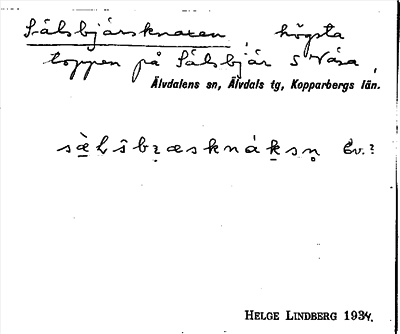 Sälsbjärsknaxen, högsta
toppen på Sälsbjär S Nåsa,
Älvdalens sn, Älvdals tg, Kopparbergs län.
Ev.?
HELGE LINDBERG 1934.